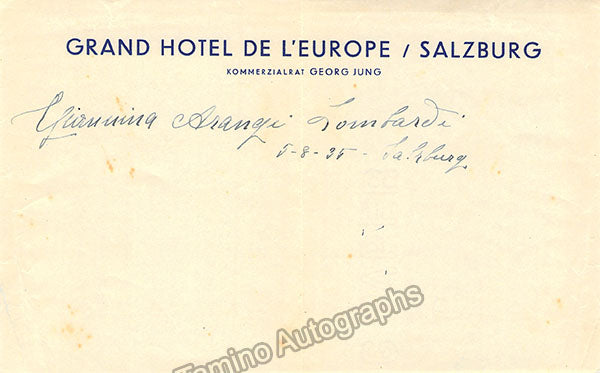 GRAND HOTEL DE L'EUROPE / SALZBURG
KOMMERZIALRAT GEORG JUNG
Giannina Arangi Lombardi
5-8-35 - Salzburg
Tamino Autographs